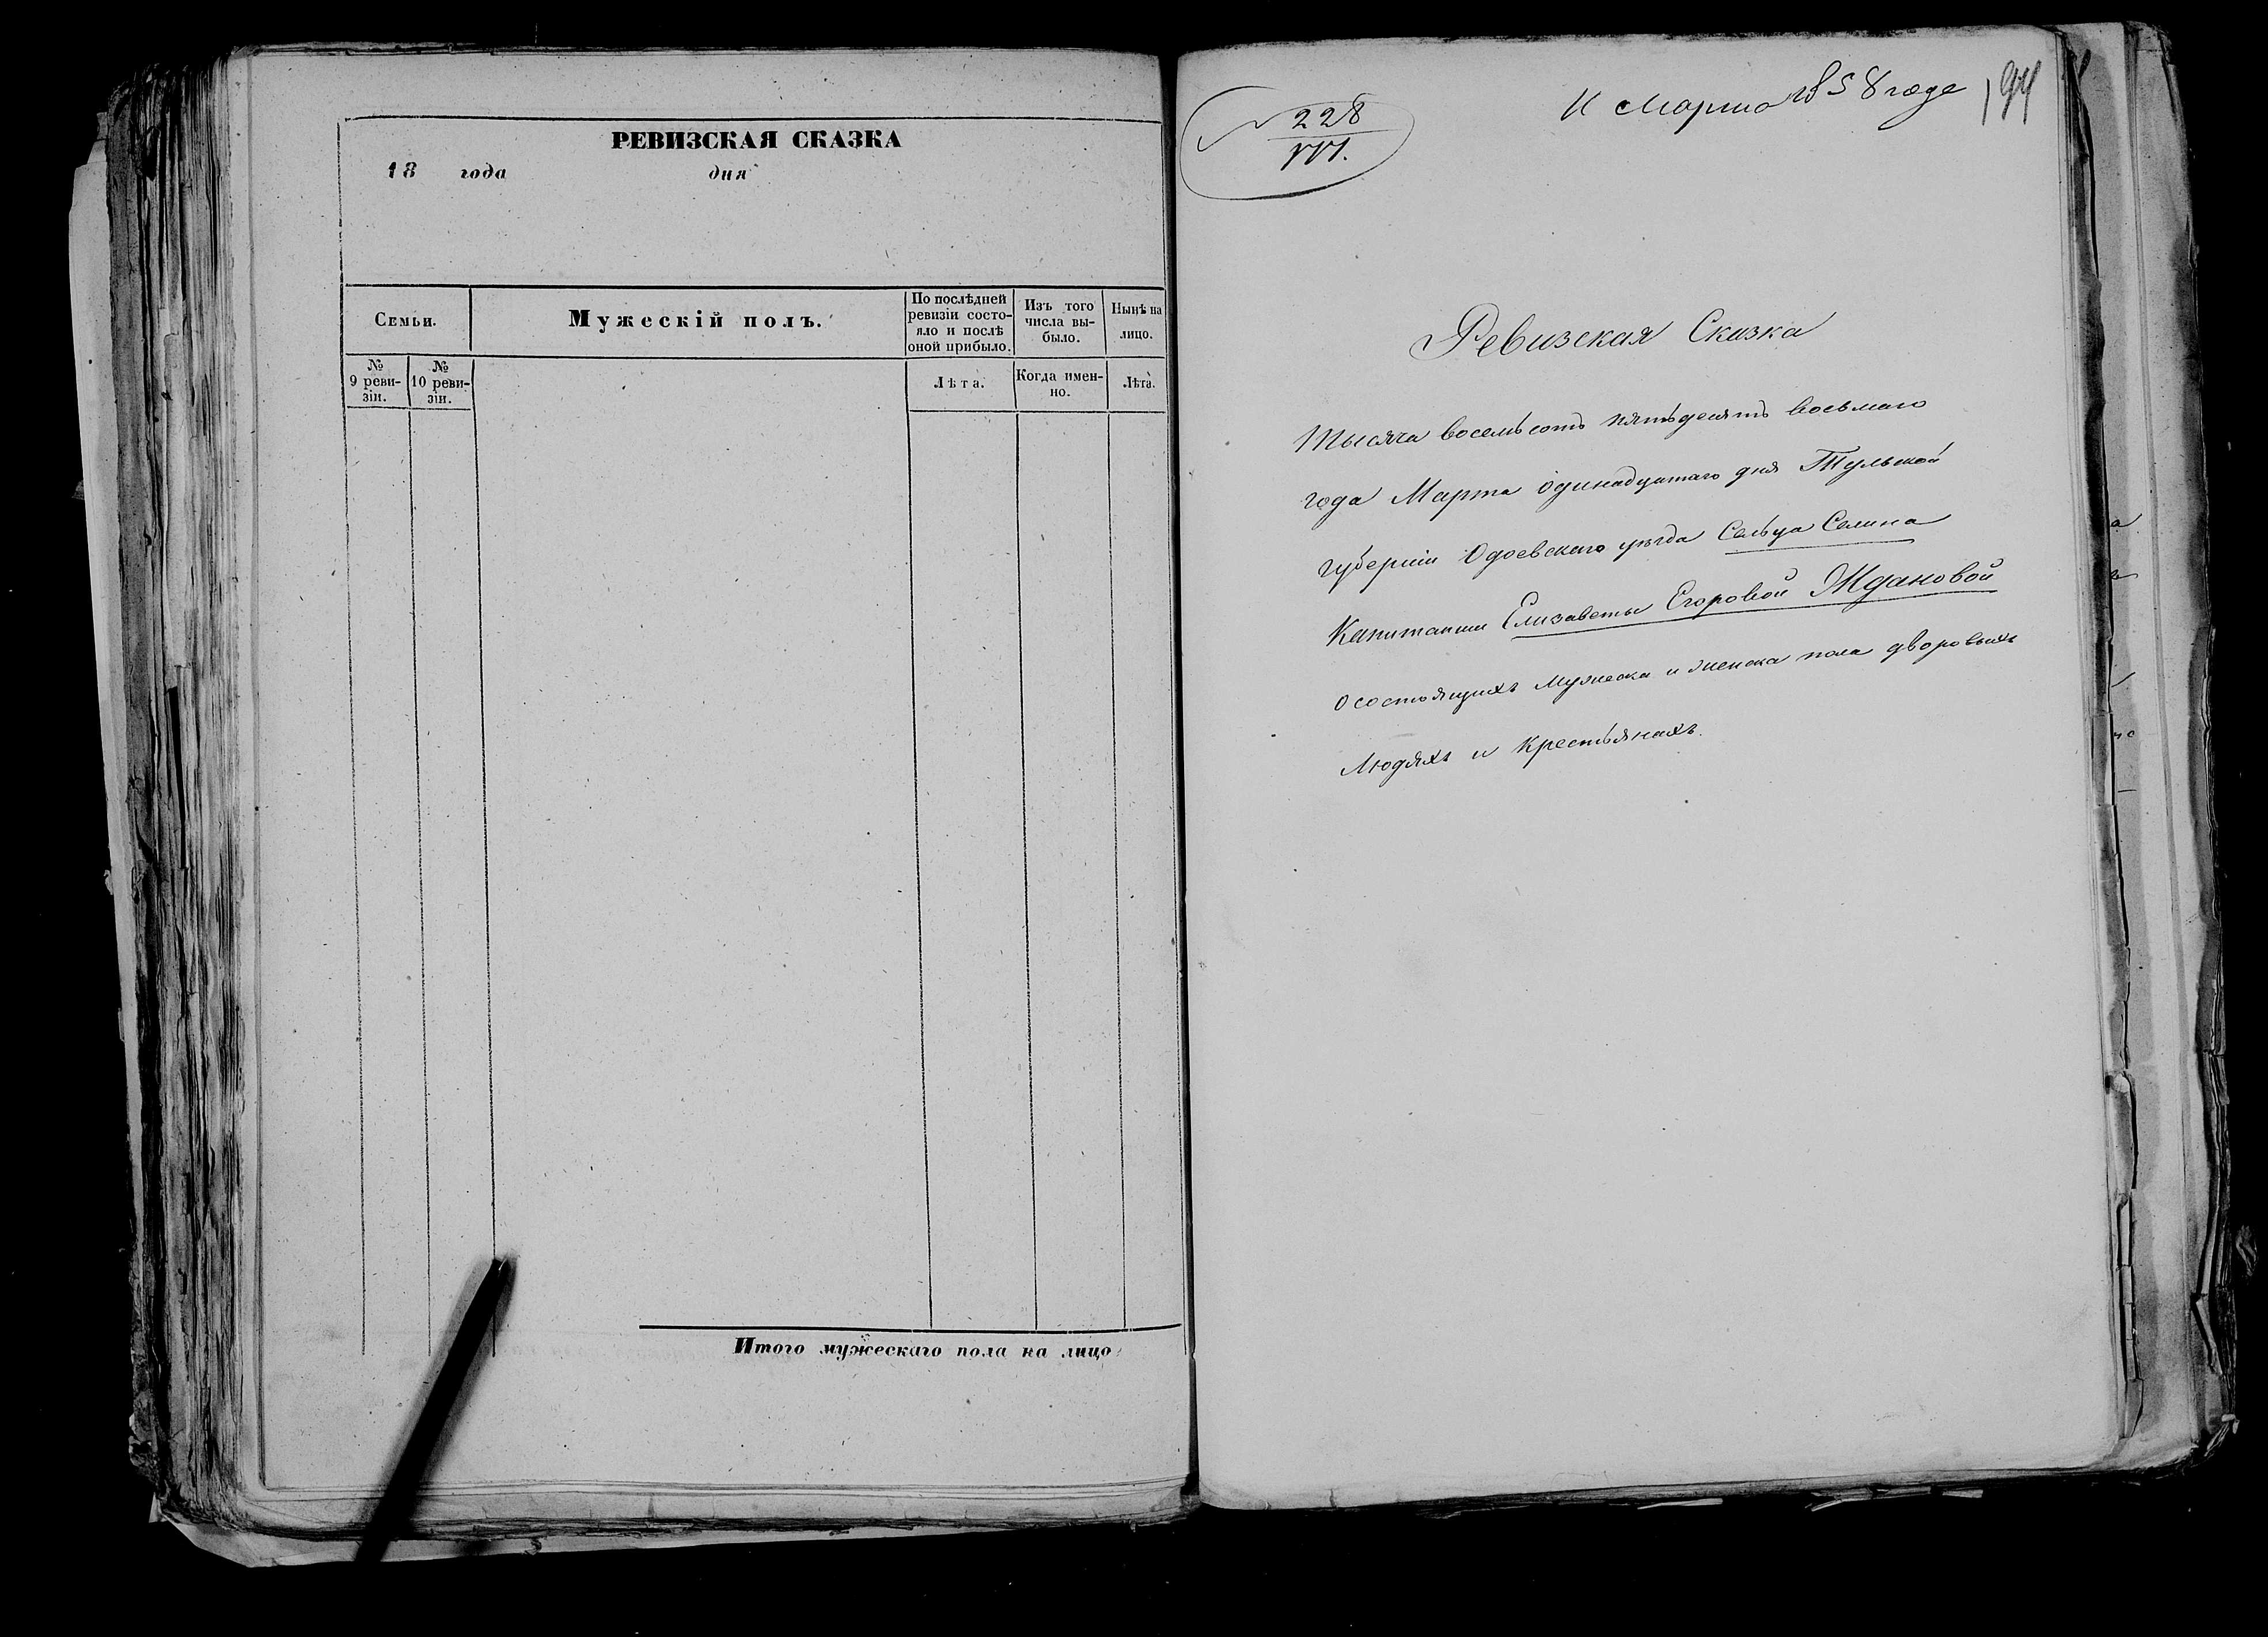 РЕВИЗСКАЯ СКАЗКА
18 года дня
Семьи.
Мужескій полъ.
По послѣдней
ревизіи состо-
яло и послѣ
оной прибыло.
Изъ того
числа вы-
было.
Нынѣ на
лицо.
№
9 реви-
зіи.
№
10 реви-
зіи.
Лѣта.
Когда имен-
но.
Лѣта.
Итого мужескаго пола на лицо
228
11 Марта 1858 года
Ревизская Сказка
Тысяча восемьсотъ пятьдесятъ восьмаго
года Марта одинадцатаго дня Тульской
губерніи Одоевскаго уѣзда Сельца Селина
Капитанши Елизаветы Егоровой Ждановой
о состоящихъ мужеска и женска пола дворовыхъ
людяхъ и крестьянахъ.